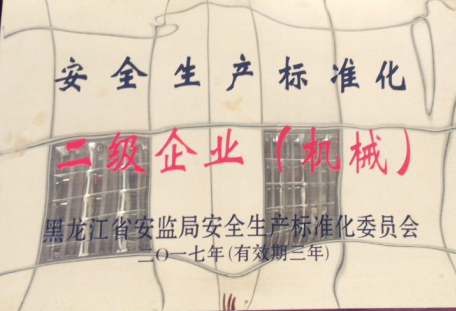 安全生产标准化
二级企业（机械）
黑龙江省安监局安全生产标准化委员会
二〇一七年(有效期三年)